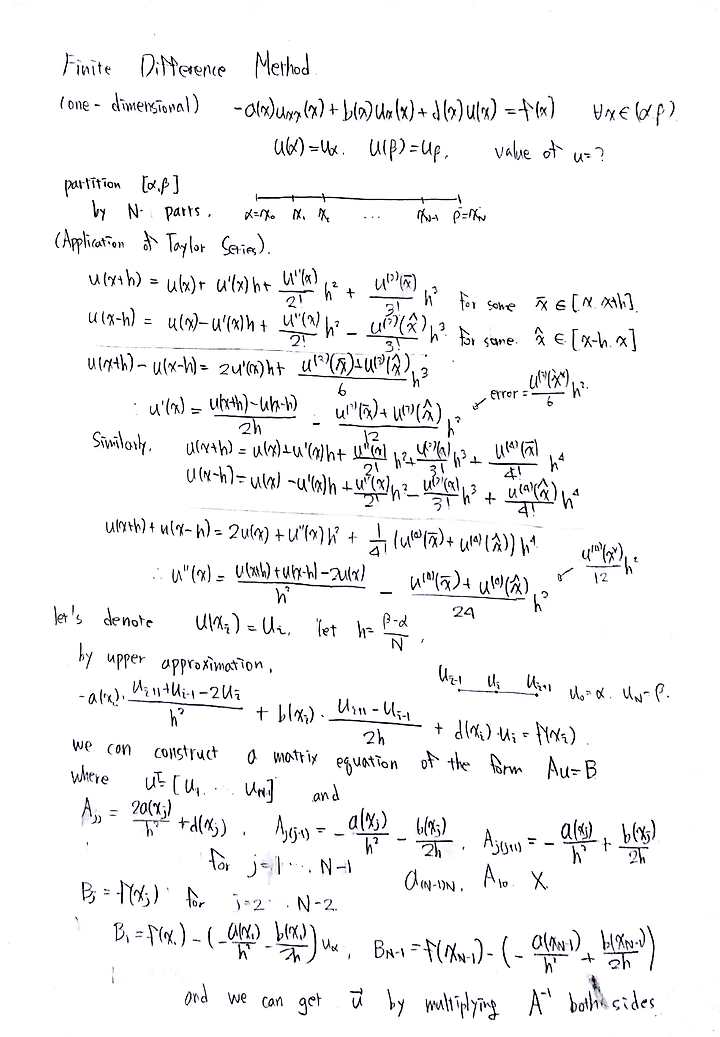 Finite Difference Method
(one-dimensional) -a(x)uxx(x)+b(x)ux(x)+d(x)u(x)=f(x) ∀x∈(α β)
u(α)=uα. u(β)=uβ, value of u=?
partition [α,β]
by N parts. α=x₀ x₁ x₂ ... xN-1 β=xN
(Application of Taylor Series).
u(x+h) = u(x)+ u'(x)h+ u''(x)/2! h² + u⁽³⁾(x̄)/3! h³ for some x̄ ∈ [x. x+h].
u(x-h) = u(x)-u'(x)h+ u''(x)/2! h² - u⁽³⁾(x̂)/3! h³ for some. x̂ ∈ [x-h. x]
u(x+h)-u(x-h)= 2u'(x)h+ (u⁽³⁾(x̄)+u⁽³⁾(x̂))/6 h³
∴ u'(x) = (u(x+h)-u(x-h))/2h - (u⁽³⁾(x̄)+u⁽³⁾(x̂))/12 h² ↙ error = u⁽³⁾(x*)/6 h².
Similarly. u(x+h) = u(x)+u'(x)h+ u''(x)/2! h²+ u⁽³⁾(x)/3! h³+ u⁽⁴⁾(x̄)/4! h⁴
u(x-h)=u(x)-u'(x)h+ u''(x)/2! h²- u⁽³⁾(x)/3! h³ + u⁽⁴⁾(x̂)/4! h⁴
u(x+h)+u(x-h) = 2u(x)+u''(x)h² + 1/4! (u⁽⁴⁾(x̄)+u⁽⁴⁾(x̂))h⁴
∴ u''(x) = (u(x+h)+u(x-h)-2u(x))/h² - (u⁽⁴⁾(x̄)+u⁽⁴⁾(x̂))/24 h² ↙ u⁽⁴⁾(x*)/12 h²
let's denote u(xᵢ)=uᵢ, let h=(β-α)/N,
by upper approximation, uᵢ₋₁ uᵢ uᵢ₊₁ u₀=α. uN=β.
-a(xᵢ)·(uᵢ₊₁+uᵢ₋₁-2uᵢ)/h² + b(xᵢ)·(uᵢ₊₁-uᵢ₋₁)/2h + d(xᵢ)·uᵢ=f(xᵢ).
we can construct a matrix equation of the form Au=B
where uᵀ=[u₁. ... uN-1] and
Ajj = 2a(xj)/h² +d(xj), Aj(j-1) = -a(xj)/h² - b(xj)/2h, Aj(j+1) = -a(xj)/h² + b(xj)/2h
for j=1...N-1
a(N-1)N, A₁₀ X
Bj=f(xj) for j=2...N-2
B₁=f(x₁)-(-a(x₁)/h² - b(x₁)/2h)uα, BN-1=f(xN-1)-(-a(xN-1)/h² + b(xN-1)/2h)
and we can get u⃗ by multiplying A⁻¹ both sides